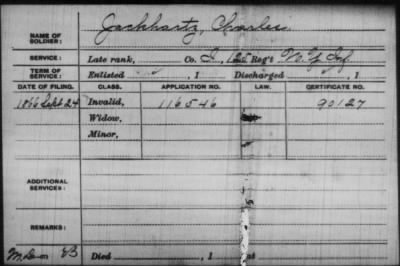 NAME OF SOLDIER: Jackhartz, Charles
SERVICE: Late rank, Co. I, 125 Reg't N.Y. Inf
TERM OF SERVICE: Enlisted , 1 Discharged , 1
DATE OF FILING. CLASS. APPLICATION NO. LAW. CERTIFICATE NO.
1866 Sept 24 Invalid, 116546 90127
Widow,
Minor,
ADDITIONAL SERVICES:
REMARKS:
Died , 1 at